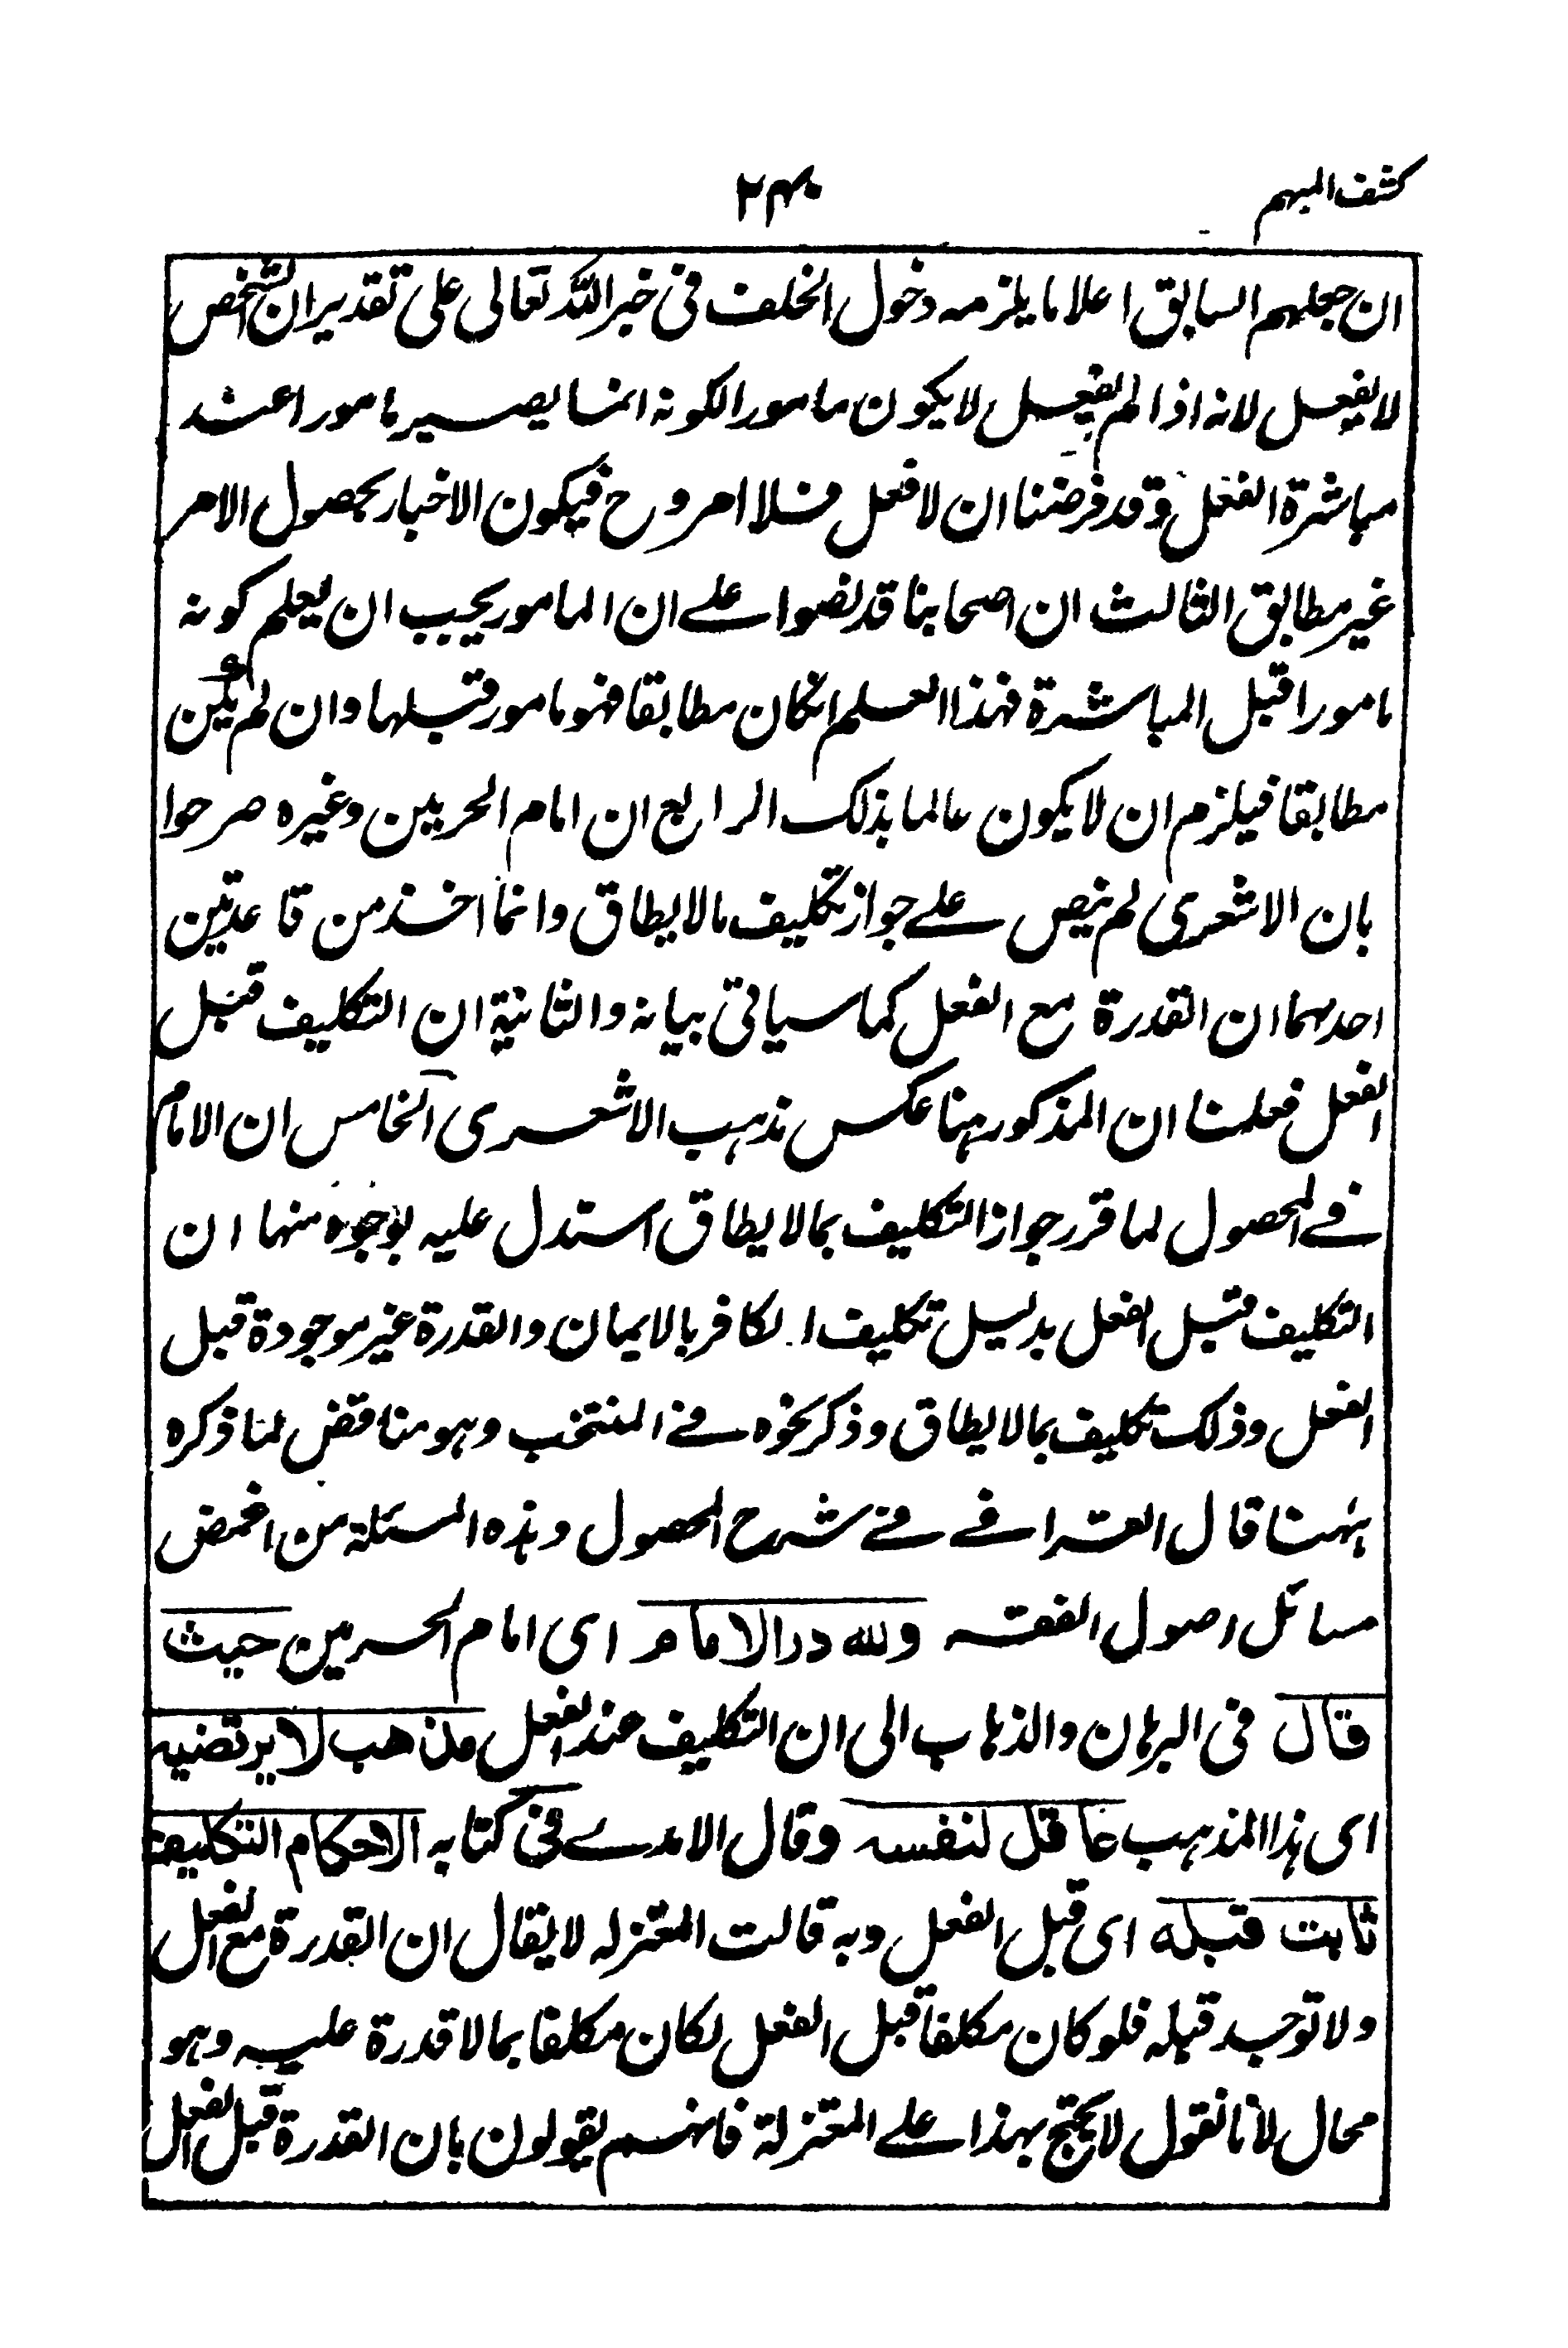 كشف المبهم
٢٤٠
ان جعلهم السابق اعلاما يلزمه دخول الخلف فى خبر الله تعالى على تقدير ان الشخص
لا يفعل لانه اذا لم يفعل لا يكون مامورا لكونه انما يصير مامورا عند
مباشرة الفعل وقد فرضنا ان لا فعل فلا امر وح فيكون الاخبار بحصول الامر
غير مطابق الثالث ان اصحابنا قد نصوا على ان المامور يجب ان يعلم كونه
مامورا قبل المباشرة فهذا العلم انكان مطابقا فهو مامور قبلها وان لم يكن
مطابقا فيلزم ان لا يكون عالما بذلك الرابع ان امام الحرمين وغيره صرحوا
بان الاشعرى لم ينص على جواز تكليف مالا يطاق وانما اخذ من قاعدتين
احدهما ان القدرة مع الفعل كما سياتى بيانه والثانية ان التكليف قبل
الفعل فعلمنا ان المذكور هنا عكس مذهب الاشعرى الخامس ان الامام
فى المحصول لما قرر جواز التكليف بمالا يطاق استدل عليه بوجوه منها ان
التكليف قبل الفعل بدليل تكليف الكافر بالايمان والقدرة غير موجودة قبل
الفعل وذلك تكليف بمالا يطاق وذكر نحوه فى المنتخب وهو مناقض لما ذكره
ههنا قال القرافى فى شرح المحصول وهذه المسئلة من اغمض
مسائل اصول الفقه ولله در الامام اى امام الحرمين حيث
قال فى البرهان والذهاب الى ان التكليف عند الفعل مذهب لا يرتضيه
اى هذا المذهب عاقل لنفسه وقال الامدى فى كتابه الاحكام التكليف
ثابت قبله اى قبل الفعل وبه قالت المعتزله لا يقال ان القدرة مع الفعل
ولا توجد قبله فلو كان مكلفا قبل الفعل لكان مكلفا بمالا قدرة عليه وهو
محال لانا نقول لا يحتج بهذا على المعتزلة فانهم يقولون بان القدرة قبل الفعل